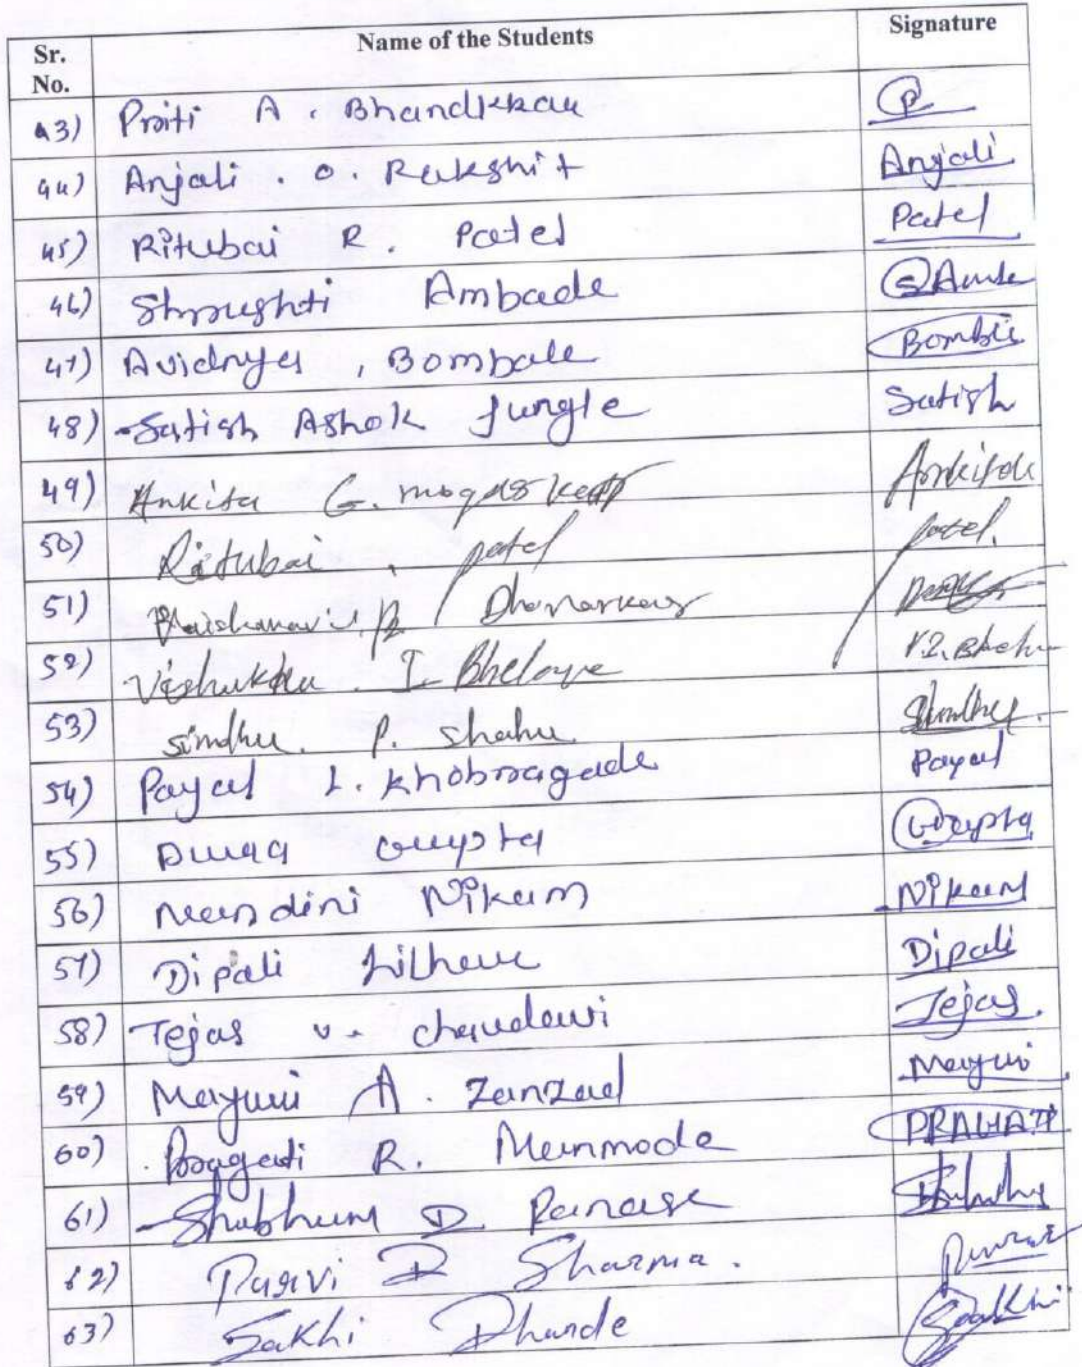 Sr. No. Name of the Students Signature
43) Priti A. Bhandkkar P
44) Anjali . O. Rakshit Anjali
45) Ritubai R. Patel Patel
46) Shrushti Ambade
47) Avidnya , Bombale
48) Satish Ashok Jungle Satish
49) Ankita G. Ankita
50) Ritubai . patel patel.
51) Dhanorkar
52) Vishakha I. Bhelaye
53) simdhu. P. shahu.
54) Payal L. Khobragade Payal
55) Gupta Gupta
56) Nandini Nikam Nikam
57) Dipali Lilhare Dipali
58) Tejas v. chaudawi Tejas.
59) Mayuri A. Zanzad Mayuri
60) Pragati R. Manmode PRAGATI
61) Shubhum D Panase
62) Purvi D Sharma.
63) Sakhi Dhande Sakhi